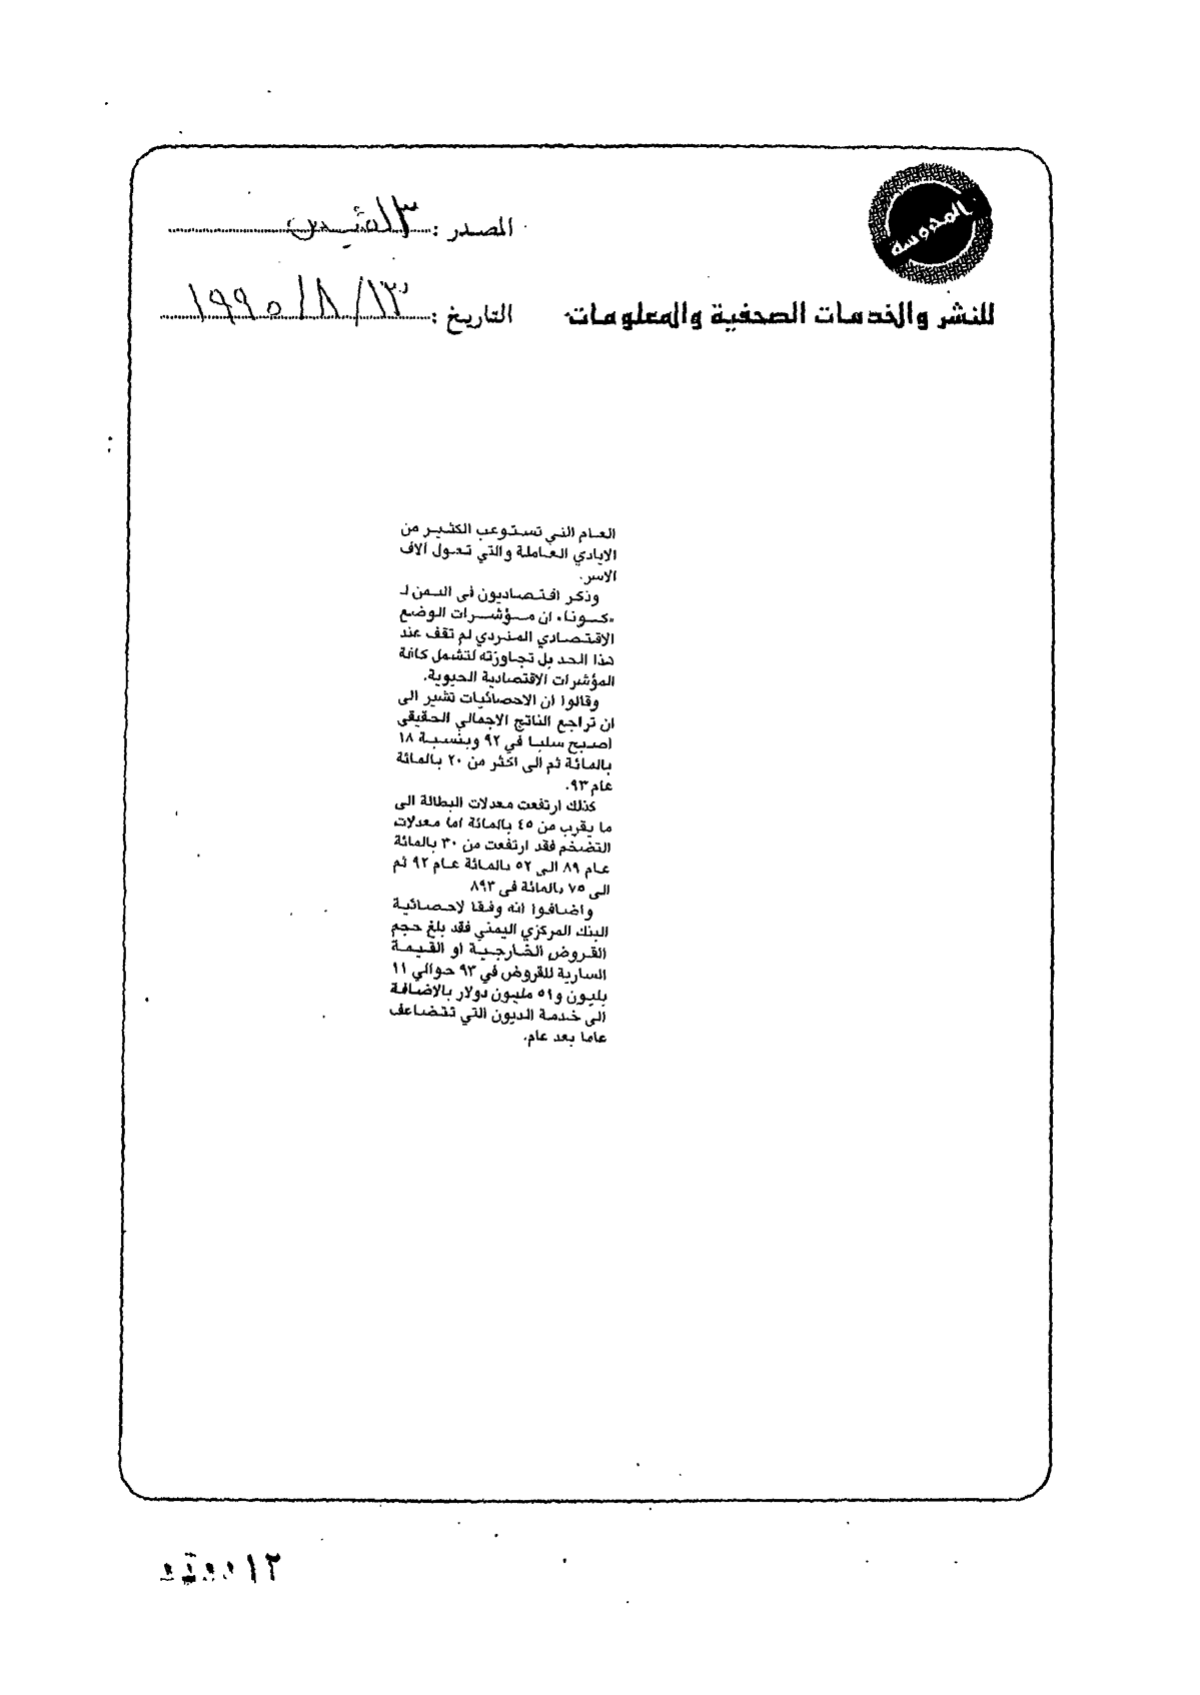 المحروسة
المصدر : القبس
للنشر والخدمات الصحفية والمعلومات
التاريخ : ١٣ / ٨ / ١٩٩٥
العام التي تستوعب الكثير من
الايادي العاملة والتي تعول الاف
الاسر.
وذكر اقتصاديون في اليمن لـ
«كونا» ان مؤشرات الوضع
الاقتصادي المتردي لم تقف عند
هذا الحد بل تجاوزته لتشمل كافة
المؤشرات الاقتصادية الحيوية.
وقالوا ان الاحصائيات تشير الى
ان تراجع الناتج الاجمالي الحقيقي
اصبح سلبا في ٩٢ وبنسبة ١٨
بالمائة ثم الى اكثر من ٢٠ بالمائة
عام ٩٣.
كذلك ارتفعت معدلات البطالة الى
ما يقرب من ٤٥ بالمائة اما معدلات
التضخم فقد ارتفعت من ٣٠ بالمائة
عام ٨٩ الى ٥٢ بالمائة عام ٩٢ ثم
الى ٧٥ بالمائة في ٨٩٣
واضافوا انه وفقا لاحصائية
البنك المركزي اليمني فقد بلغ حجم
القروض الخارجية او القيمة
السارية للقروض في ٩٣ حوالي ١١
بليون و٥١ مليون دولار بالاضافة
الى خدمة الديون التي تتضاعف
عاما بعد عام.